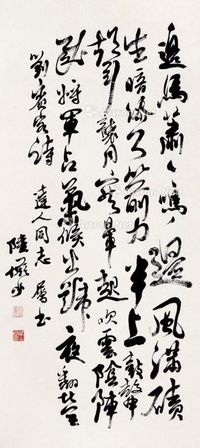 邊馬蕭々鳴邊風滿磧
生暗添弓箭力斗上鼓鼙
聲襲月寒暈起吹雲陰陣
成將軍占氣候出號夜翻營
劉賓客詩
達人同志屬書
陸儼少